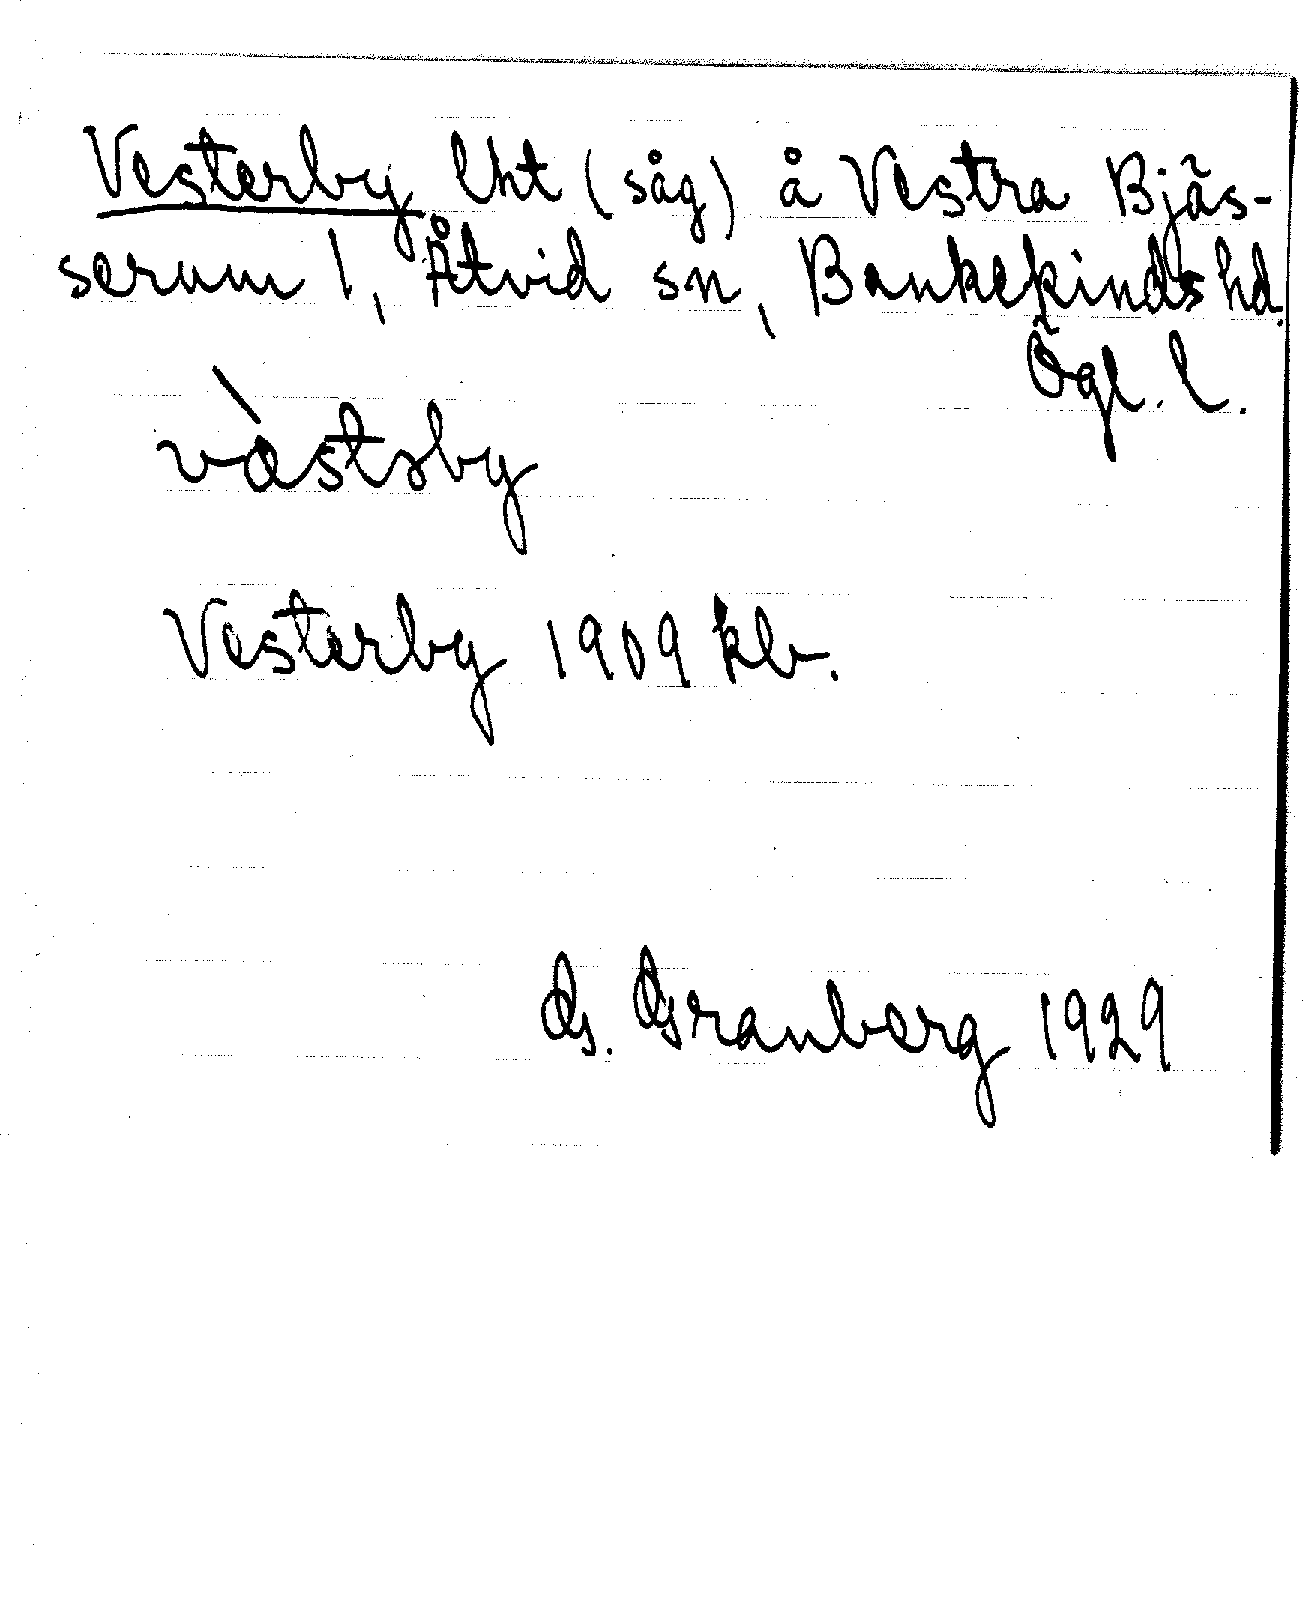 Vesterby lht (såg) å Vestra Bjäs-
serum 1, Åtvid sn, Bankekinds hd.
Ögl. l.
vàstsby
Vesterby 1909 kb.
G. Granberg 1929